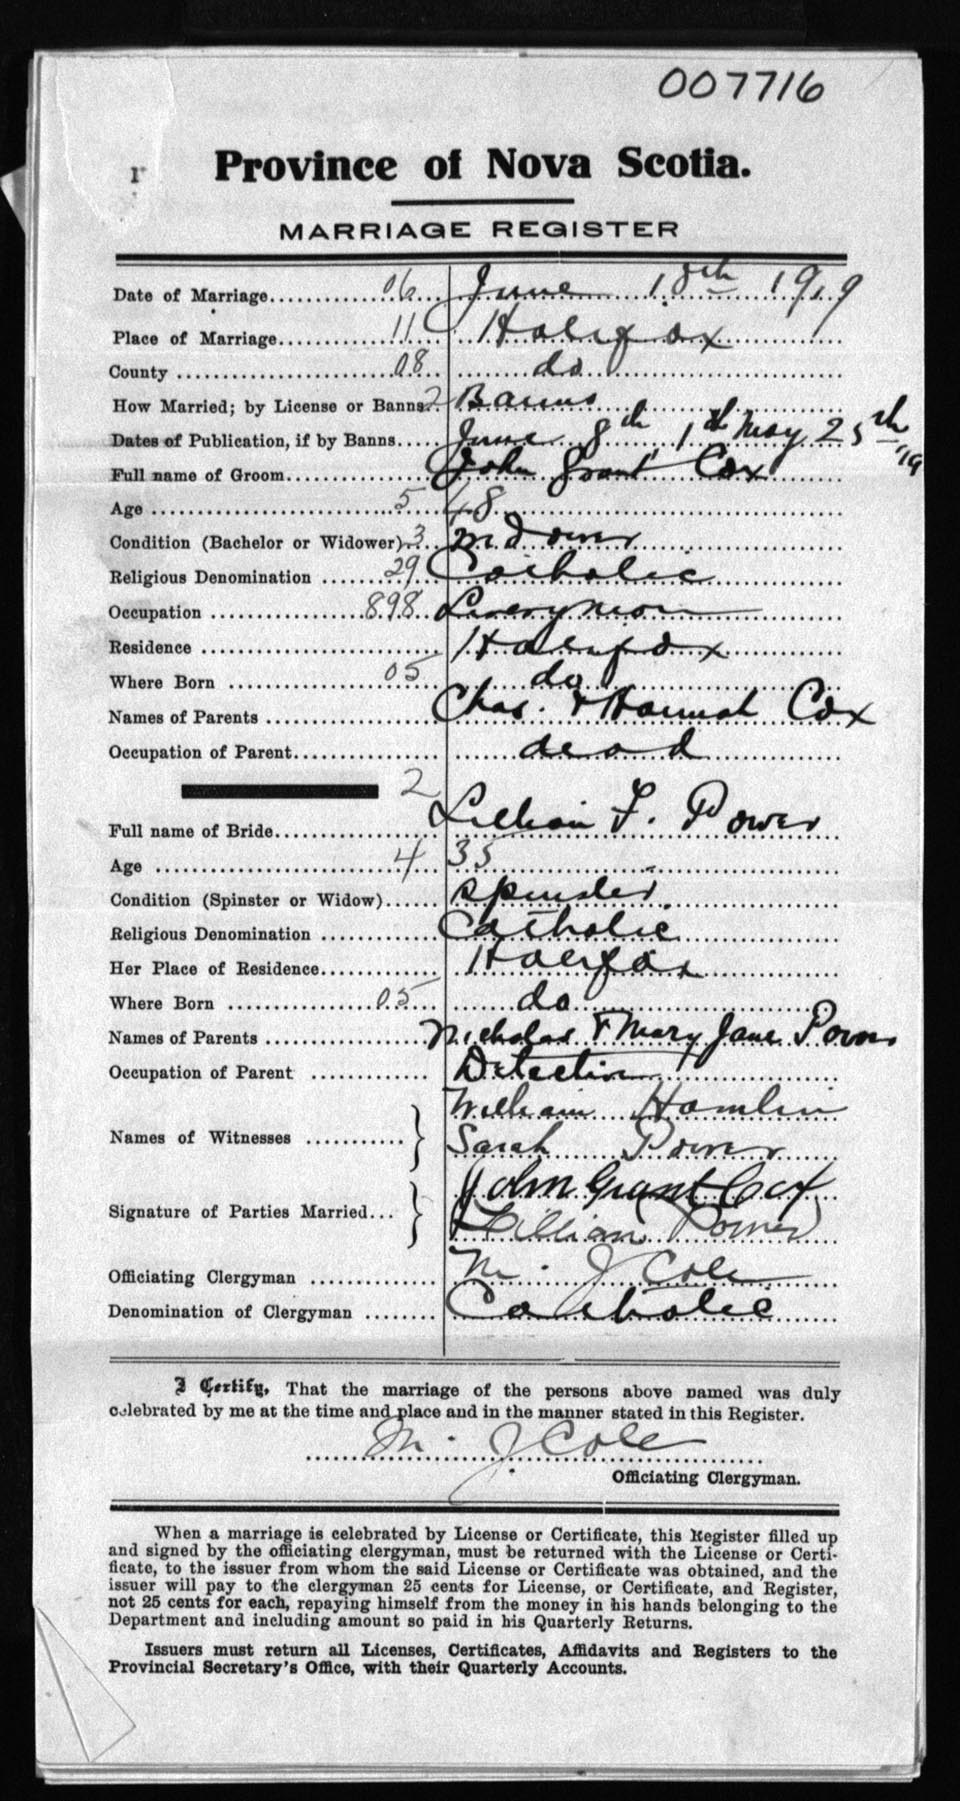 007716
r
Province of Nova Scotia.
MARRIAGE REGISTER
Date of Marriage 06 June 18th 1919
Place of Marriage 11 Halifax
County 08 do
How Married; by License or Banns 2 Banns
Dates of Publication, if by Banns June 8th 1st May 25th '19
Full name of Groom John Grant Cox
Age 5 48
Condition (Bachelor or Widower) 3 Widower
Religious Denomination 29 Catholic
Occupation 898 Liveryman
Residence Halifax
Where Born 05 do
Names of Parents Chas. & Hannah Cox
Occupation of Parent dead
2
Full name of Bride Lillian F. Power
Age 4 35
Condition (Spinster or Widow) Spinster
Religious Denomination Catholic
Her Place of Residence Halifax
Where Born 05 do
Names of Parents Nicholas & Mary Jane Power
Occupation of Parent Detective
William Hamlin
Names of Witnesses
Sarah Power
John Grant Cox
Signature of Parties Married
Lillian Power
Officiating Clergyman M. J. Cole
Denomination of Clergyman Catholic
I Certify, That the marriage of the persons above named was duly
celebrated by me at the time and place and in the manner stated in this Register.
M. J. Cole
Officiating Clergyman.
When a marriage is celebrated by License or Certificate, this Register filled up
and signed by the officiating clergyman, must be returned with the License or Certi-
ficate, to the issuer from whom the said License or Certificate was obtained, and the
issuer will pay to the clergyman 25 cents for License, or Certificate, and Register,
not 25 cents for each, repaying himself from the money in his hands belonging to the
Department and including amount so paid in his Quarterly Returns.
Issuers must return all Licenses, Certificates, Affidavits and Registers to the
Provincial Secretary's Office, with their Quarterly Accounts.